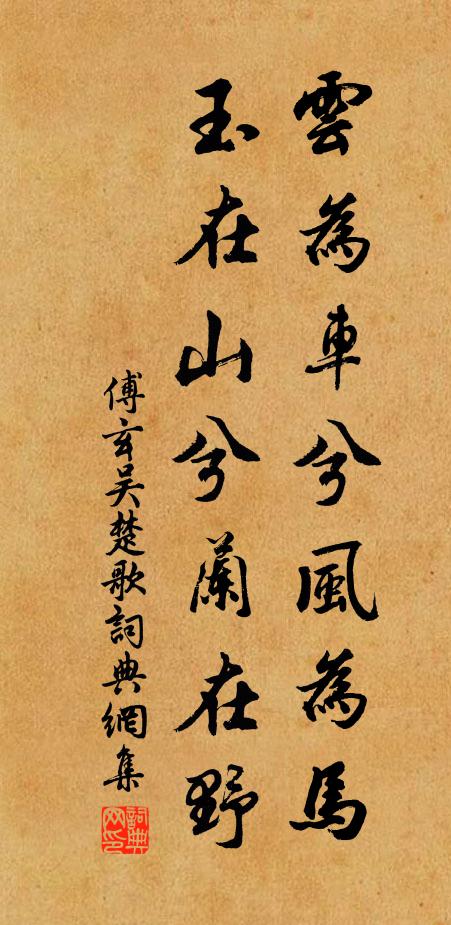 雲為車兮風為馬
玉在山兮蘭在野
傅玄吴楚歌詞典網集
詞典
网印